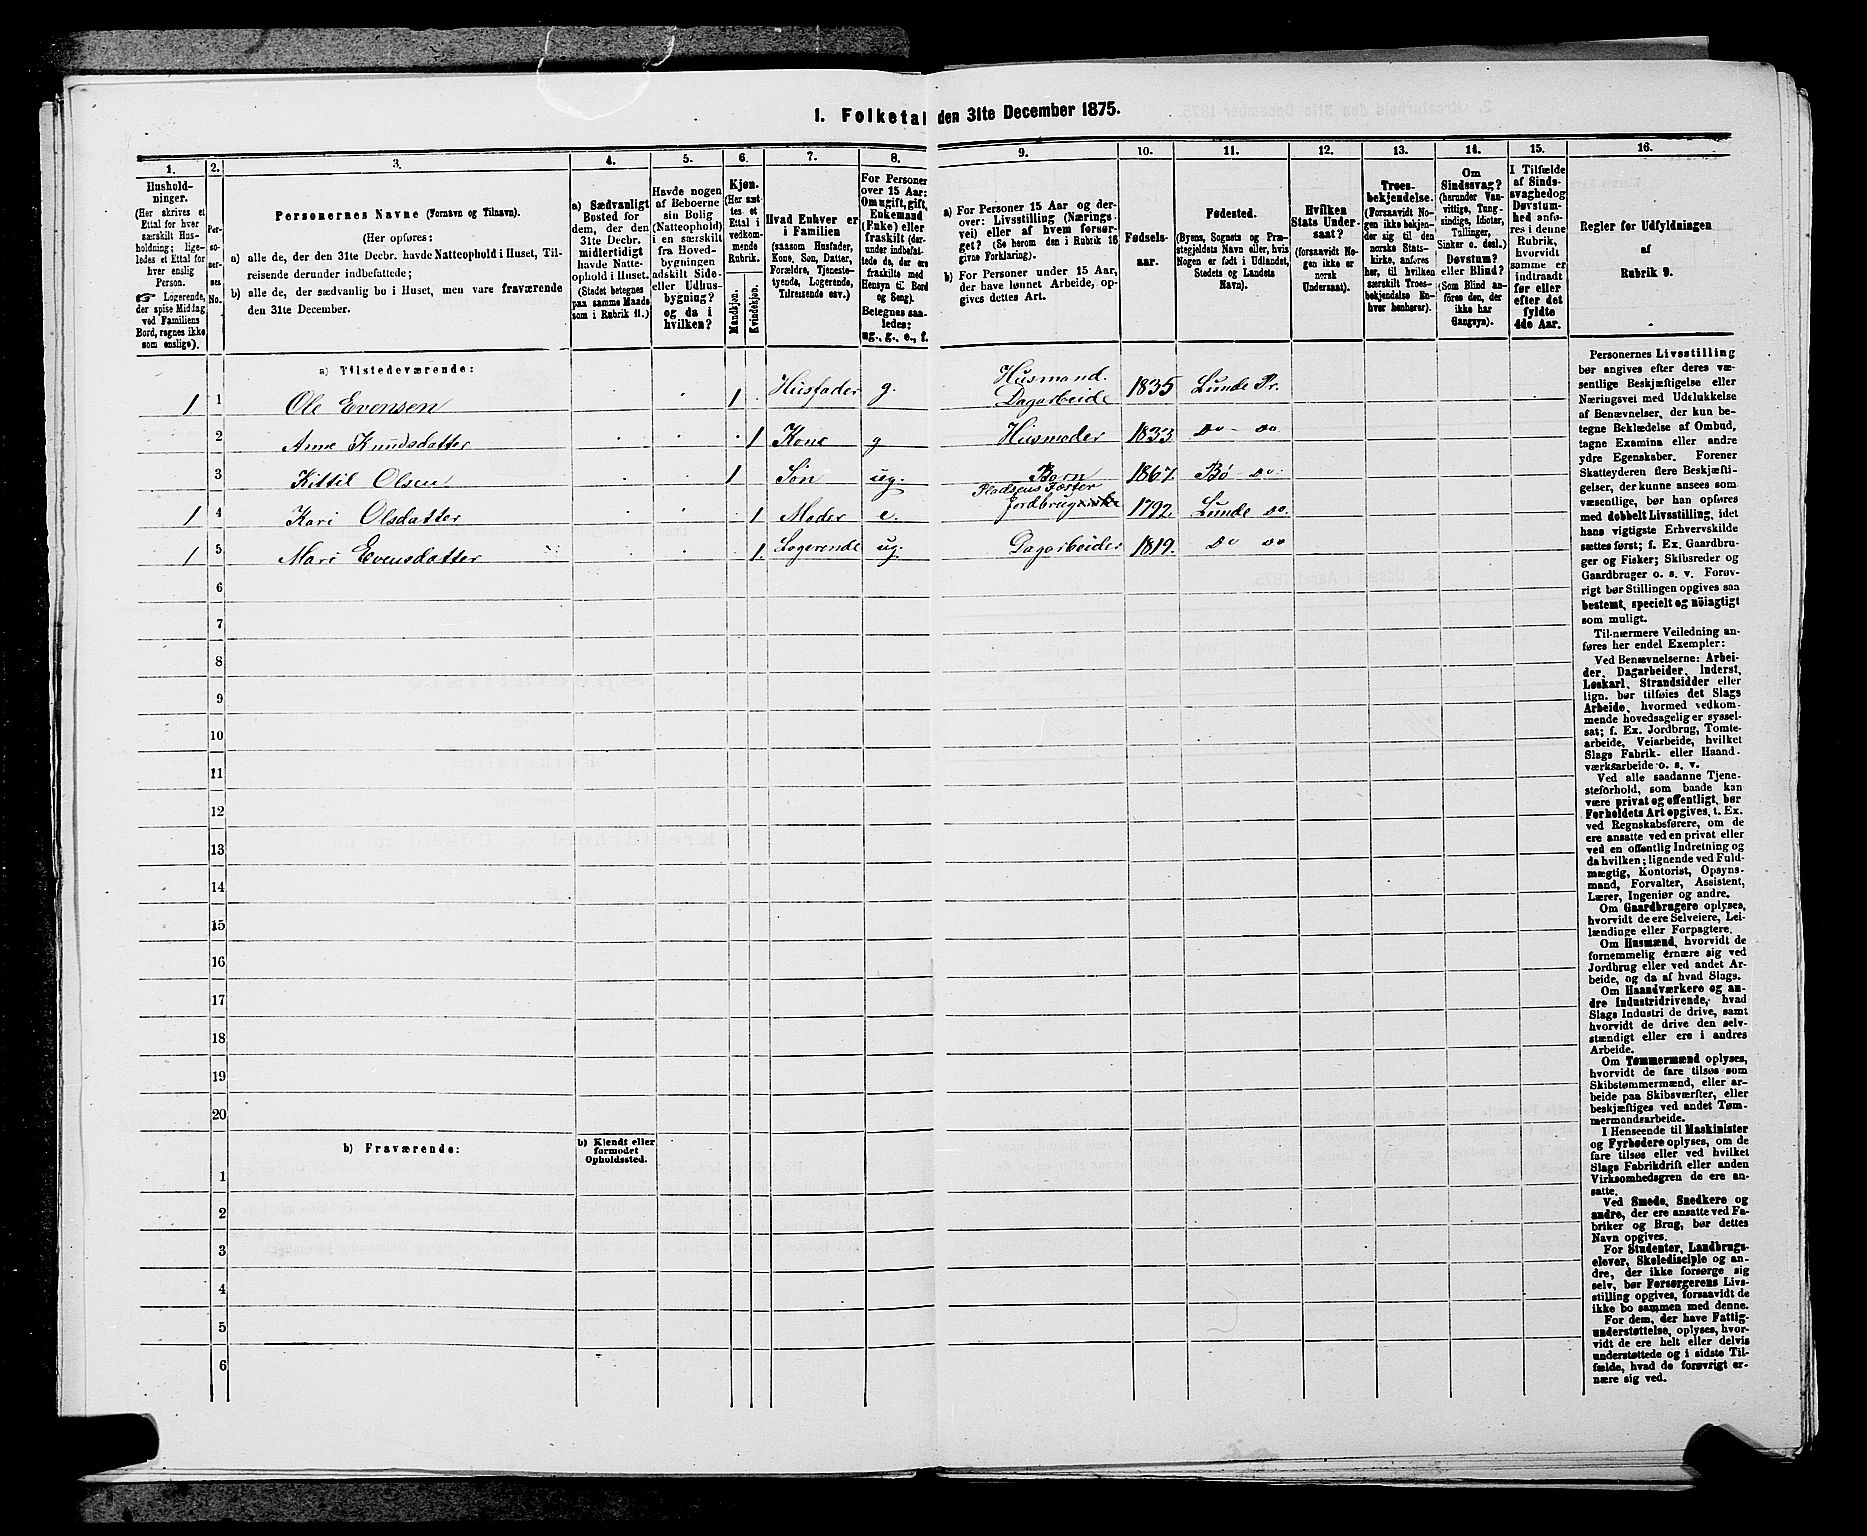 I. Folketal den 31te December 1875.
1.
Hushold-
ninger.
(Her skrives et
Ettal for hver
særskilt Hus-
holdning; lige-
ledes et Ettal for
hver enslig
Person.
☞ Logerende,
der spise Middag
ved Familiens
Bord, regnes ikke
som enslige).
2.
Per-
so-
ner-
nes
No.
3.
Personernes Navne (Fornavn og Tilnavn).
(Her opføres:
a) alle de, der den 31te Decbr. havde Natteophold i Huset, Til-
reisende derunder indbefattede;
b) alle de, der sædvanlig bo i Huset, men vare fraværende
den 31te December.
4.
a) Sædvanligt
Bosted for
dem, der den
31te Decbr.
midlertidigt
havde Natte-
ophold i Huset.
(Stedet betegnes
paa samme Maade
som i Rubrik 11.)
5.
Havde nogen
af Beboerne
sin Bolig
(Natteophold)
i en særskilt
fra Hoved-
bygningen
adskilt Side-
eller Udhus-
bygning?
og da i
hvilken?
6.
Kjøn.
(Her sæt-
tes et
Ettal i
vedkom-
mende
Rubrik.
Mandkjøn.
Kvindekjøn.
7.
Hvad Enhver er
i Familien
(saasom Husfader,
Kone, Søn, Datter,
Forældre, Tjeneste-
tyende, Logerende,
Tilreisende osv.)
8.
For Personer
over 15 Aar:
Om ugift, gift,
Enkemand
(Enke) eller
fraskilt (der-
under indbefat-
tede de, der ere
fraskilte med
Hensyn til Bord
og Seng).
Betegnes saa-
ledes:
ug., g., e., f.
9.
a) For Personer 15 Aar og der-
over: Livsstilling (Nærings-
vei) eller af hvem forsør-
get? (Se herom den i Rubrik 16
givne Forklaring).
b) For Personer under 15 Aar,
der have lønnet Arbeide, op-
gives dettes Art.
10.
Fødsels-
aar.
11.
Fødested.
(Byens, Sognets og Præ-
stegjeldets Navn eller, hvis
Nogen er født i Udlandet,
Stedets og Landets
Navn).
12.
Hvilken
Stats Under-
saat?
(forsaavidt No-
gen ikke er
norsk
Undersaat).
13.
Troes-
bekjendelse.
(Forsaavidt No-
gen ikke bekjen-
der sig til den
norske Stats-
kirke, anføres
her, til hvilken
særskilt Troes-
bekjendelse En-
hver henhører).
14.
Om
Sindssvag?
(herunder Van-
vittige, Tung-
sindige, Idioter,
Tullinger,
Sinker o. desl.)
Døvstum?
eller Blind?
(Som Blind an-
føres den, der
ikke har
Gangsyn).
15.
I Tilfælde
af Sinds-
svaghed og
Døvstum-
hed anfø-
res i denne
Rubrik,
hvorvidt
samme er
indtraadt
før eller
efter det
fyldte
4de Aar.
16.
Regler for Udfyldningen
af
Rubrik 9.
a) Tilstedeværende:
1 1 Ole Evensen 1 Husfader g. Husmand. Dagarbeide 1835 Lunde Pr.
2 Anne Knudsdatter 1 Kone g Husmoder 1833. Do - Do
3 Kittil Olsen 1 Søn ug. Barn 1867. Bø - Do.
1 4 Kari Olsdatter 1 Moder e. 1792. Lunde Do.
1 5 Mari Evensdatter 1. Logerende ug. Dagarbeider 1819. Do Do
6
7
8
9
10
11
12
13
14
15
16
17
18
19
20
b) Fraværende:
b) Kjendt eller
formodet
Opholdssted.
1
2
3
4
5
6
Personernes Livsstilling
bør angives efter deres væ-
sentlige Beskjæftigelse eller
Næringsvei med Udelukkelse
af Benævnelser, der kun be-
tegne Beklædelse af Ombud,
tagne Examina eller andre
ydre Egenskaber. Forener
Skatteyderen flere Beskjæfti-
gelser, der kunne ansees som
væsentlige, bør han opføres
med dobbelt Livsstilling, idet
hans vigtigste Erhvervskilde
sættes først; f. Ex. Gaardbru-
ger og Fisker; Skibsreder og
Gaardbruger o. s. v. Forøv-
rigt bør Stillingen opgives saa
bestemt, specielt og nöiagtigt
som muligt.
Til nærmere Veiledning an-
føres her endel Exempler:
Ved Benævnelserne: Arbei-
der, Dagarbeider, Inderst,
Løskarl, Strandsidder eller
lign. bør tilføies det Slags
Arbeide, hvormed vedkom-
mende hovedsagelig er syssel-
sat; f. Ex. Jordbrug, Tomte-
arbeide, Veiarbeide, hvilket
Slags Fabrik- eller Haand-
værksarbeide o. s. v.
Ved alle saadanne Tjene-
steforhold, som baade kan
være privat og offentligt, bør
Forholdets Art opgives, t. Ex.
ved Regnskabsførere, om de
ere ansatte ved en privat eller
ved en offentlig Indretning og
da hvilken; lignende ved Fuld-
mægtig, Kontorist, Opsyns-
mand, Forvalter, Assistent,
Lærer, Ingeniør og andre.
Om Gaardbrugere oplyses,
hvorvidt de ere Selveiere, Lei-
lændinge eller Forpagtere.
Om Husmænd, hvorvidt de
fornemmelig ernære sig ved
Jordbrug eller ved andet Ar-
beide, og da af hvad Slags.
Om Haandværkere og an-
dre Industridrivende, hvad
Slags Industri de drive, samt
hvorvidt de drive den selv-
stændigt eller ere i andres
Arbeide.
Om Tømmermænd oplyses,
hvorvidt de fare tilsøs som
Skibstømmermænd, eller ar-
beide paa Skibsværfter, eller
beskjæftiges ved andet Tøm-
mermandsarbeide.
I Henseende til Maskinister
og Fyrbødere oplyses, om de
fare tilsøs eller ved hvilket
Slags Fabrikdrift eller anden
Virksomhedsgren de ere an-
satte.
Ved Smede, Snedkere og
andre, der ere ansatte ved Fa-
briker og Brug, bør dettes
Navn opgives.
For Studenter, Landbrugs-
elever, Skoledisciple og an-
dre, der ikke forsørge sig
selv, bør Forsørgerens Livs-
stilling opgives, forsaavidt de
ikke bo sammen med denne.
For dem, der have Fattig-
understøttelse, oplyses, hvor-
vidt de ere helt eller delvis
understøttede og i sidste Til-
fælde, hvad de forøvrigt er-
nære sig ved.